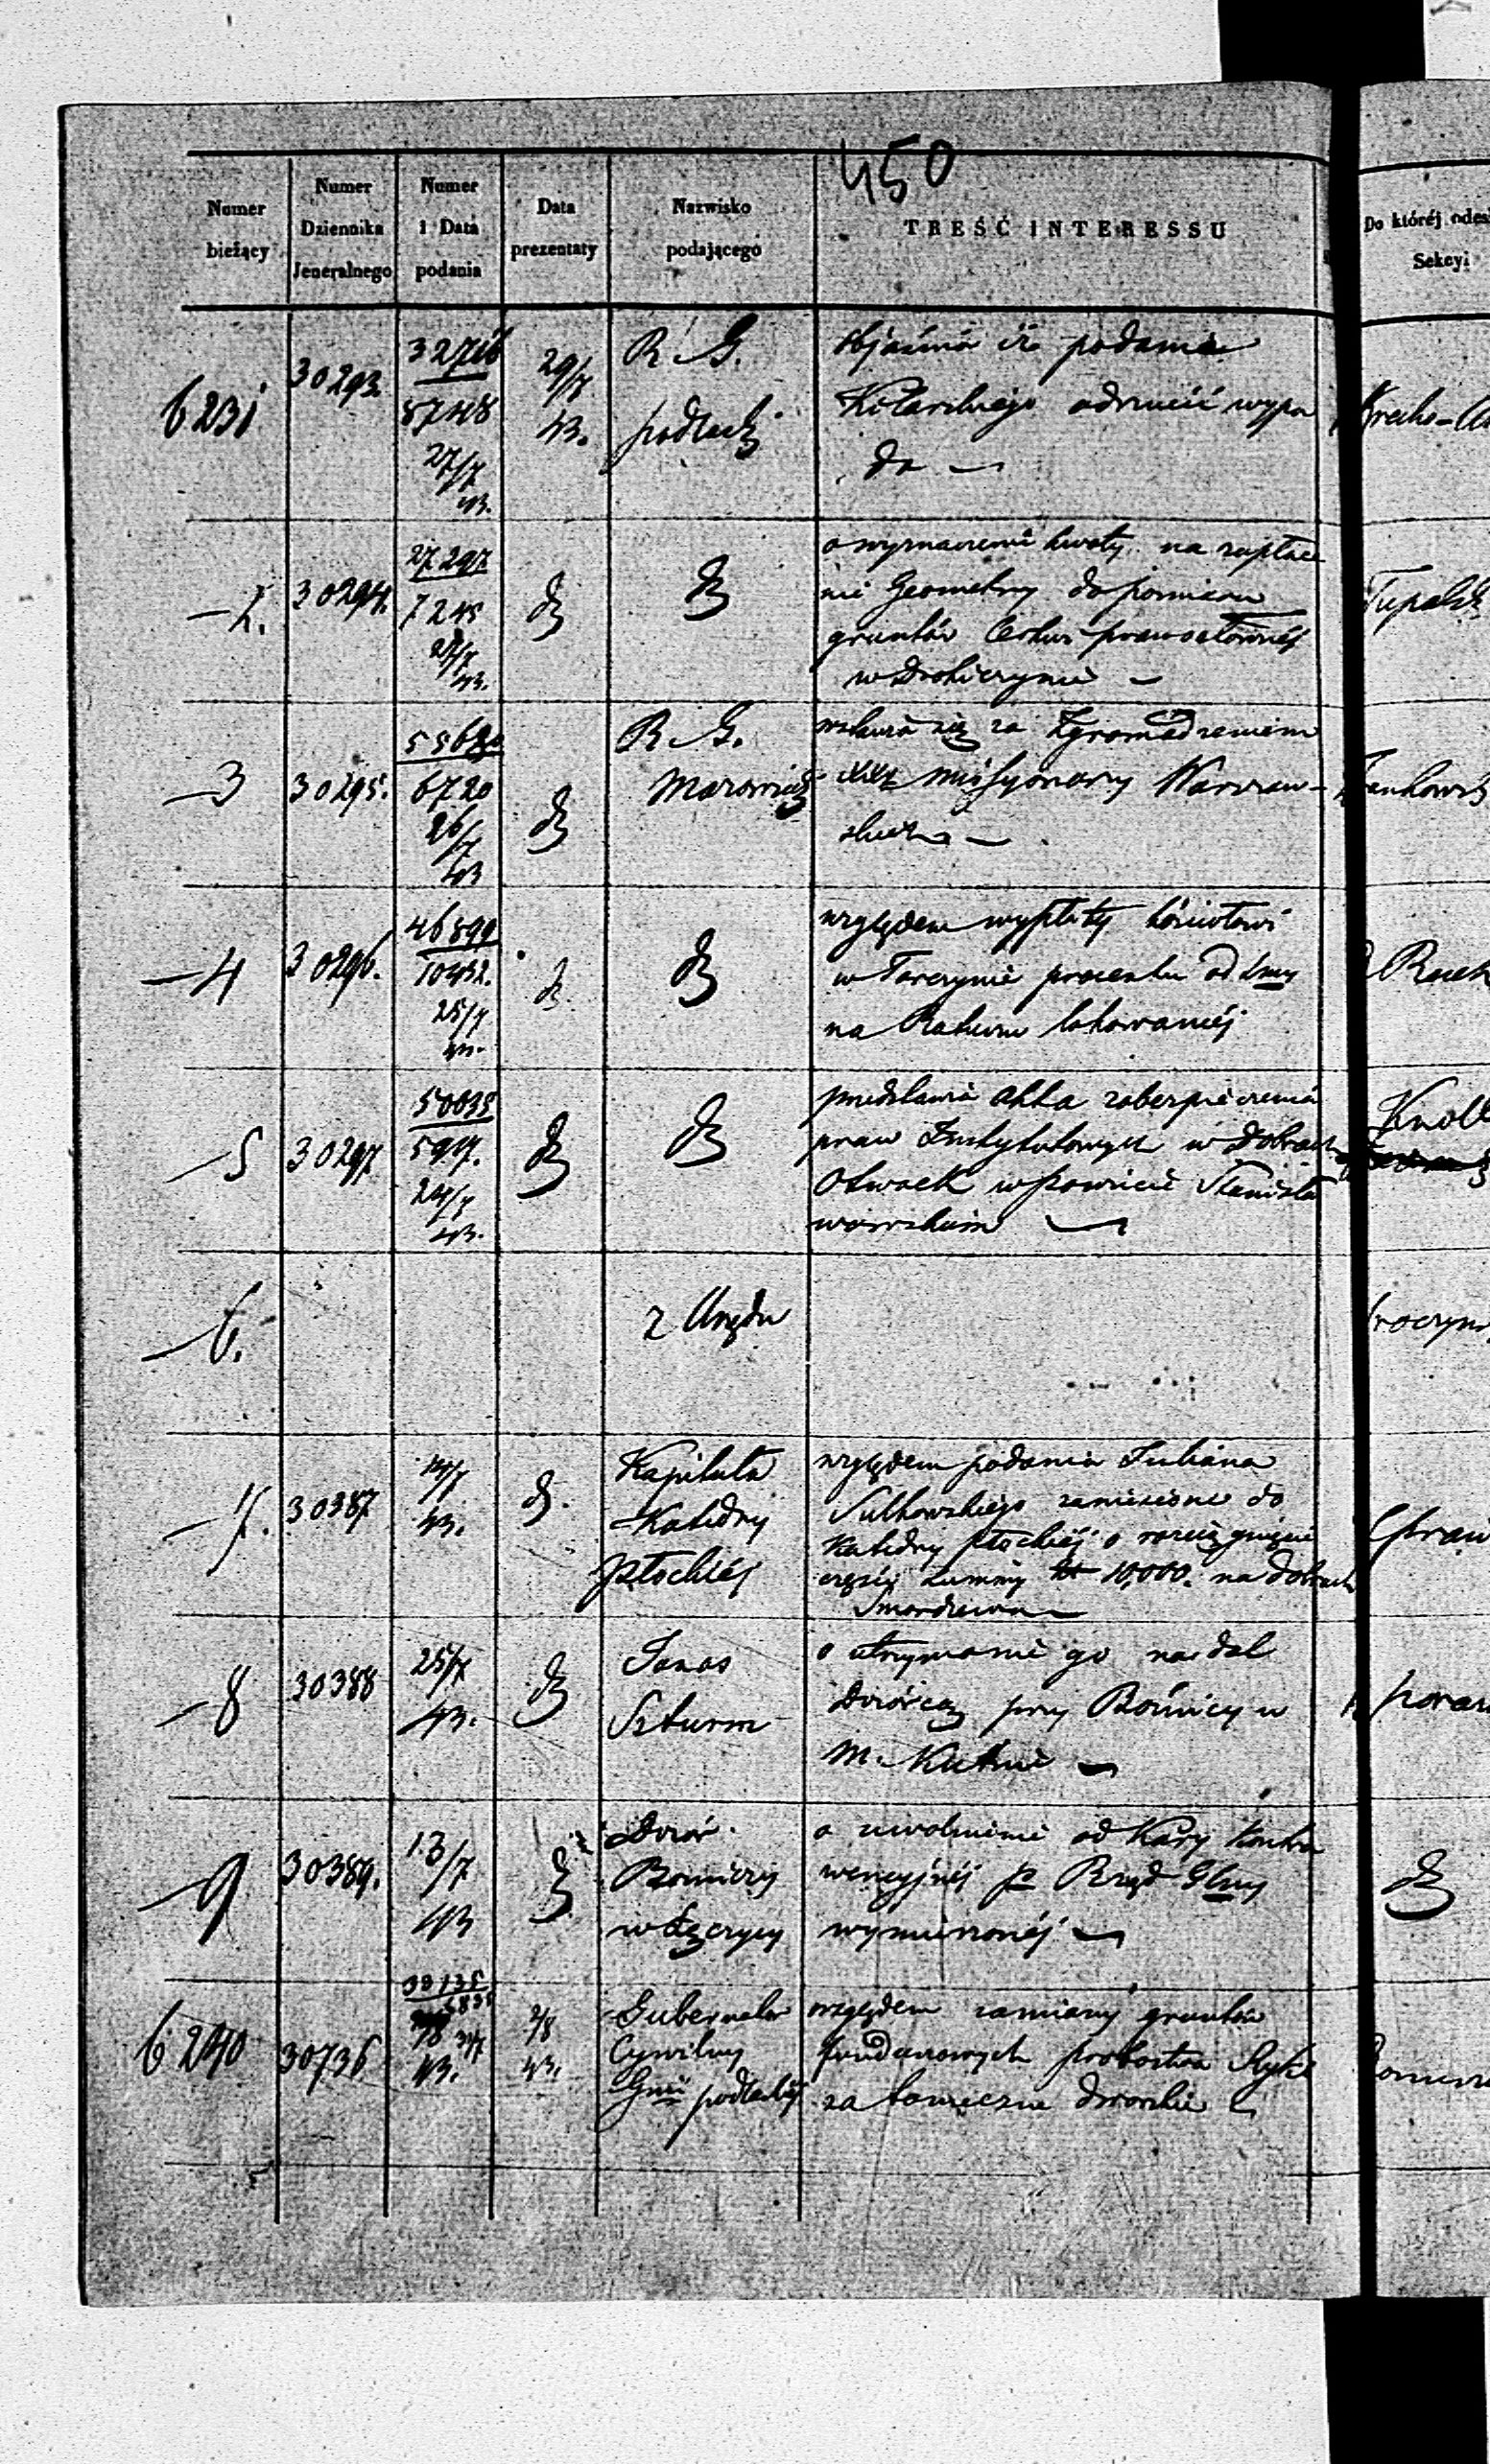 450
Numer bieżący
Numer Dziennika Jeneralnego
Numer i Data podania
Data prezentaty
Nazwisko podającego
TREŚĆ INTERESSU
Do któréj odes
Sekcyi
6231
30293.
5748
27/7
43.
29/7
43.
R. G.
podlaski
objaśnia iż podanie
odrzucić wypa
da —
—2.
30294.
27297
7245
27/7
43.
dº
dº
o wyznaczenie kwoty na zapłace
nie Geometry do pomiaru
gruntów Cerkwi prawosławnéj
w Drohiczynie —
—3
30295.
6720
26/7
43
dº
R. G.
Mazowiecki
wstawia się za Zgromadzeniem
XXży Missyonarzy Warszaw-
skich —
—4
30296.
46899
10432.
25/7
43.
dº
dº
względem wypłaty kościołowi
w Tarczynie procentu od Smy
na Rakowcu lokowanéj
—5
30297
50038
24/7
43.
dº
dº
przedstawia akta zabezpieczenia
praw Instytutowych w dobrach
Otwock w powiecie Stanisła
wowskim —
Knoll
—6.
z Urzędu
—7.
30387
14/7
43.
dº.
Kapituła
Katedry
Płockiéj
względem podania Juliana
Sułkowskiego zaniesione do
Katedry Płockiéj o rozciągnięcie
części summy 10,000. na dobrach
Smardzewo —
—8
30388
25/7
43.
dº
Jonas
Szturm
o utrzymanie go nadal
Dzwórcą przy Bóżnicy w
m. Kutnie —
—9
30389.
13/7
43
dº
Dozór
Bóżniczy
w Łęczycy
o uwolnienie od Kary Kontra
wencyjnéj pz Rząd Glny
wymierzonéj —
dº
6240
30736
33135
31/7
43.
2/8
43.
Gubernator
Cywilny
Gnii podlaskiéj
względem zamiany gruntów
funduszowych probostwa
za dworskie